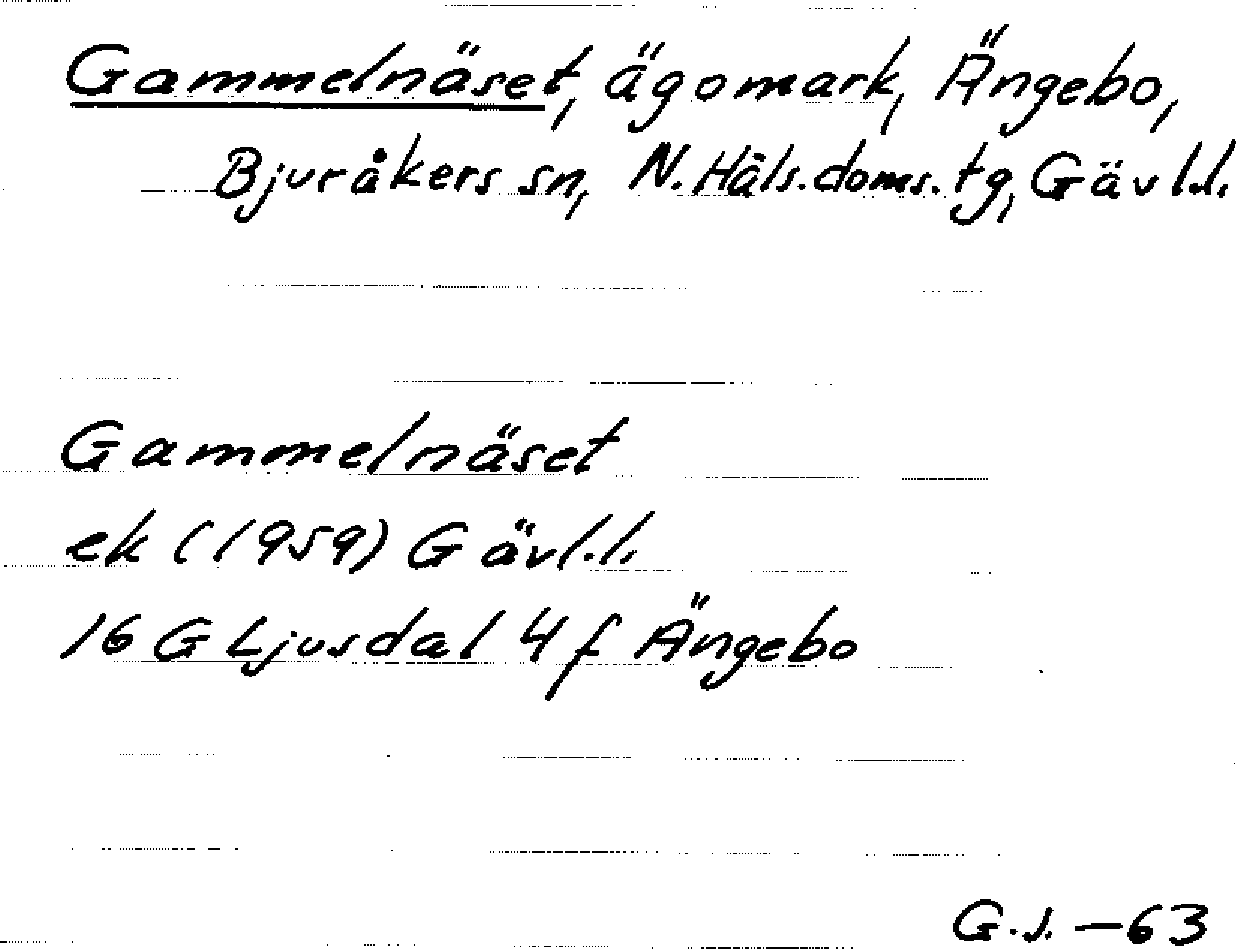 Gammelnäset, ägomark, Ängebo,
Bjuråkers sn, N. Häls. doms. tg, Gävl.l.
Gammelnäset
ek (1959) Gävl.l.
16 G Ljusdal 4 f Ängebo
G.s. — 63